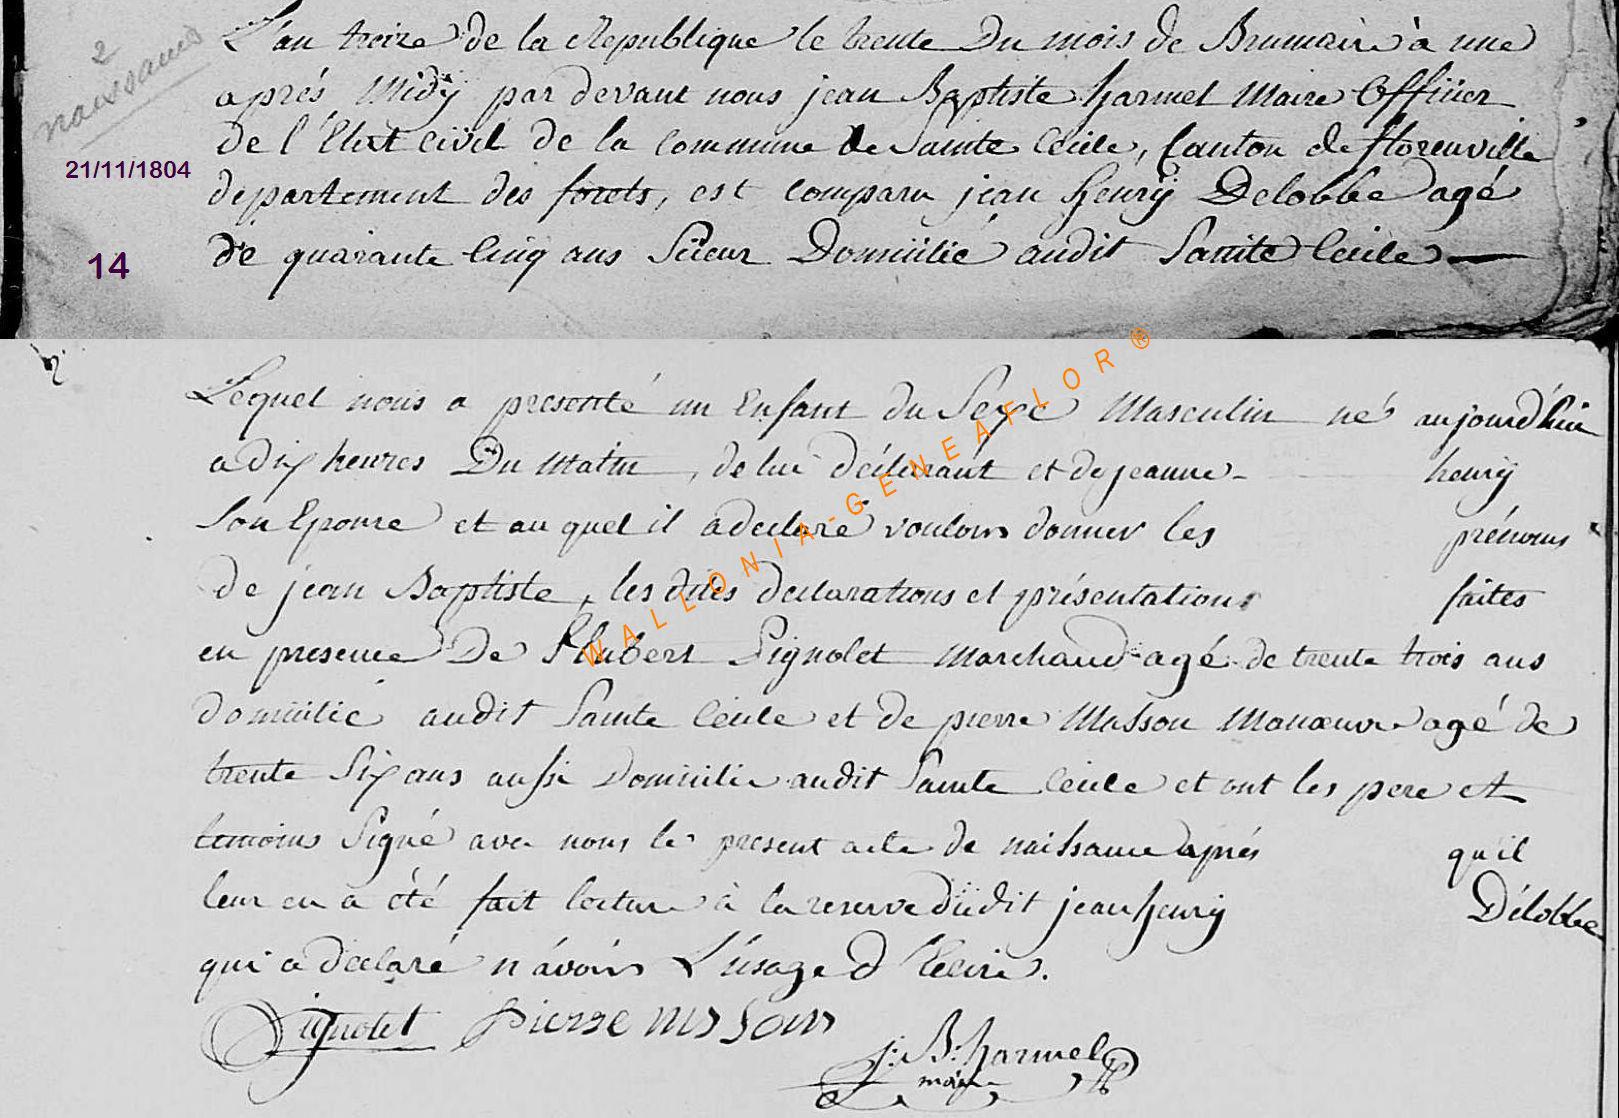 2
naissance
21/11/1804
14
L'an treize de la Republique le trente Du mois de Brumaire à une
aprés Midÿ par devant nous jean Baptiste harmel Maire Officier
de l'Etat Civil de la Commune de Sainte Cécile, Canton de florenville
departement des forets, est comparu jean henrÿ Delobbe agé
de quarante Cinq ans Sÿeur Domicilié audit Sainte Cecile
2.
Lequel nous a presenté un Enfant du Sexe Masculin né aujourd'hui
a dix heures Du Matin, de lui déclarant et de jeanne - henrÿ
Son Epouse et au quel il a declaré vouloir donner les prénoms
de jean Baptiste, les dites declarations et présentations faites
en presence De Hubert Pignolet Marchand agé de trente trois ans
domicilié audit Sainte Cécile et de pierre Masson Manœuvre agé de
trente Six ans aussi Domicilié audit Sainte Cecile et ont les pere et
temoins Signé avec nous le present acte de naissance aprés qu'il
leur en a été fait lecture à la reserve dudit jean henrÿ Délobbe
qui a declaré n'avoir L'usage d'Ecrire.
Pignolet pierre masson
j: B: harmel
maire
WALLONIA-GENEAFLOR®